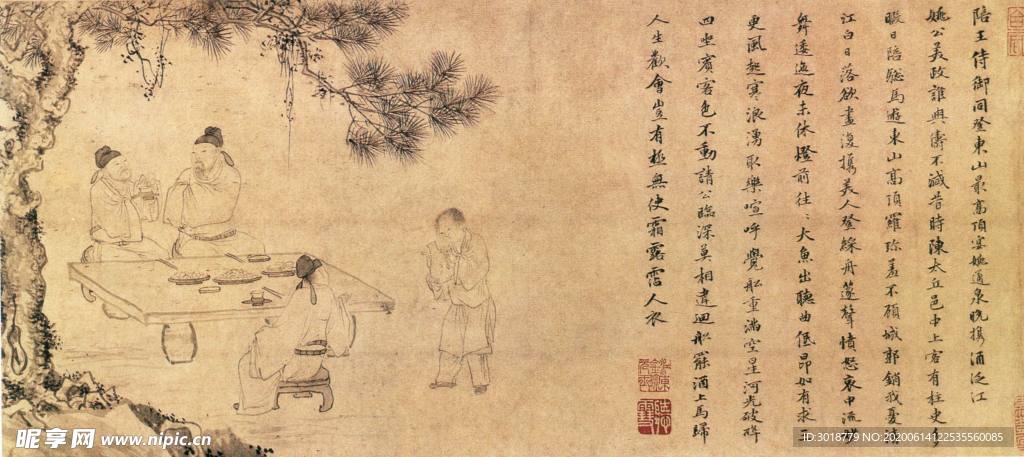 陪王侍御同登東山最高頂宴姚通泉晚攜酒泛江
姚公美政誰與儔不減昔時陳太丘邑中上客有柱史多
暇日陪驄馬遊東山高頂羅珍羞不顧城郭銷我憂清
江白日落欲盡復攜美人登綵舟篴聲憤怨哀中流妙
舞逶迤夜未休燈前往〻大魚出聽曲低昂如有求三
更風起寒浪湧取樂喧呼覺船重滿空星河光破碎
四坐賓客色不動請公臨深莫相違迴船罷酒上馬歸
人生歡會豈有極無使霜露霑人衣
昵享网 www.nipic.cn
ID:3018779 NO:20200614122535560085